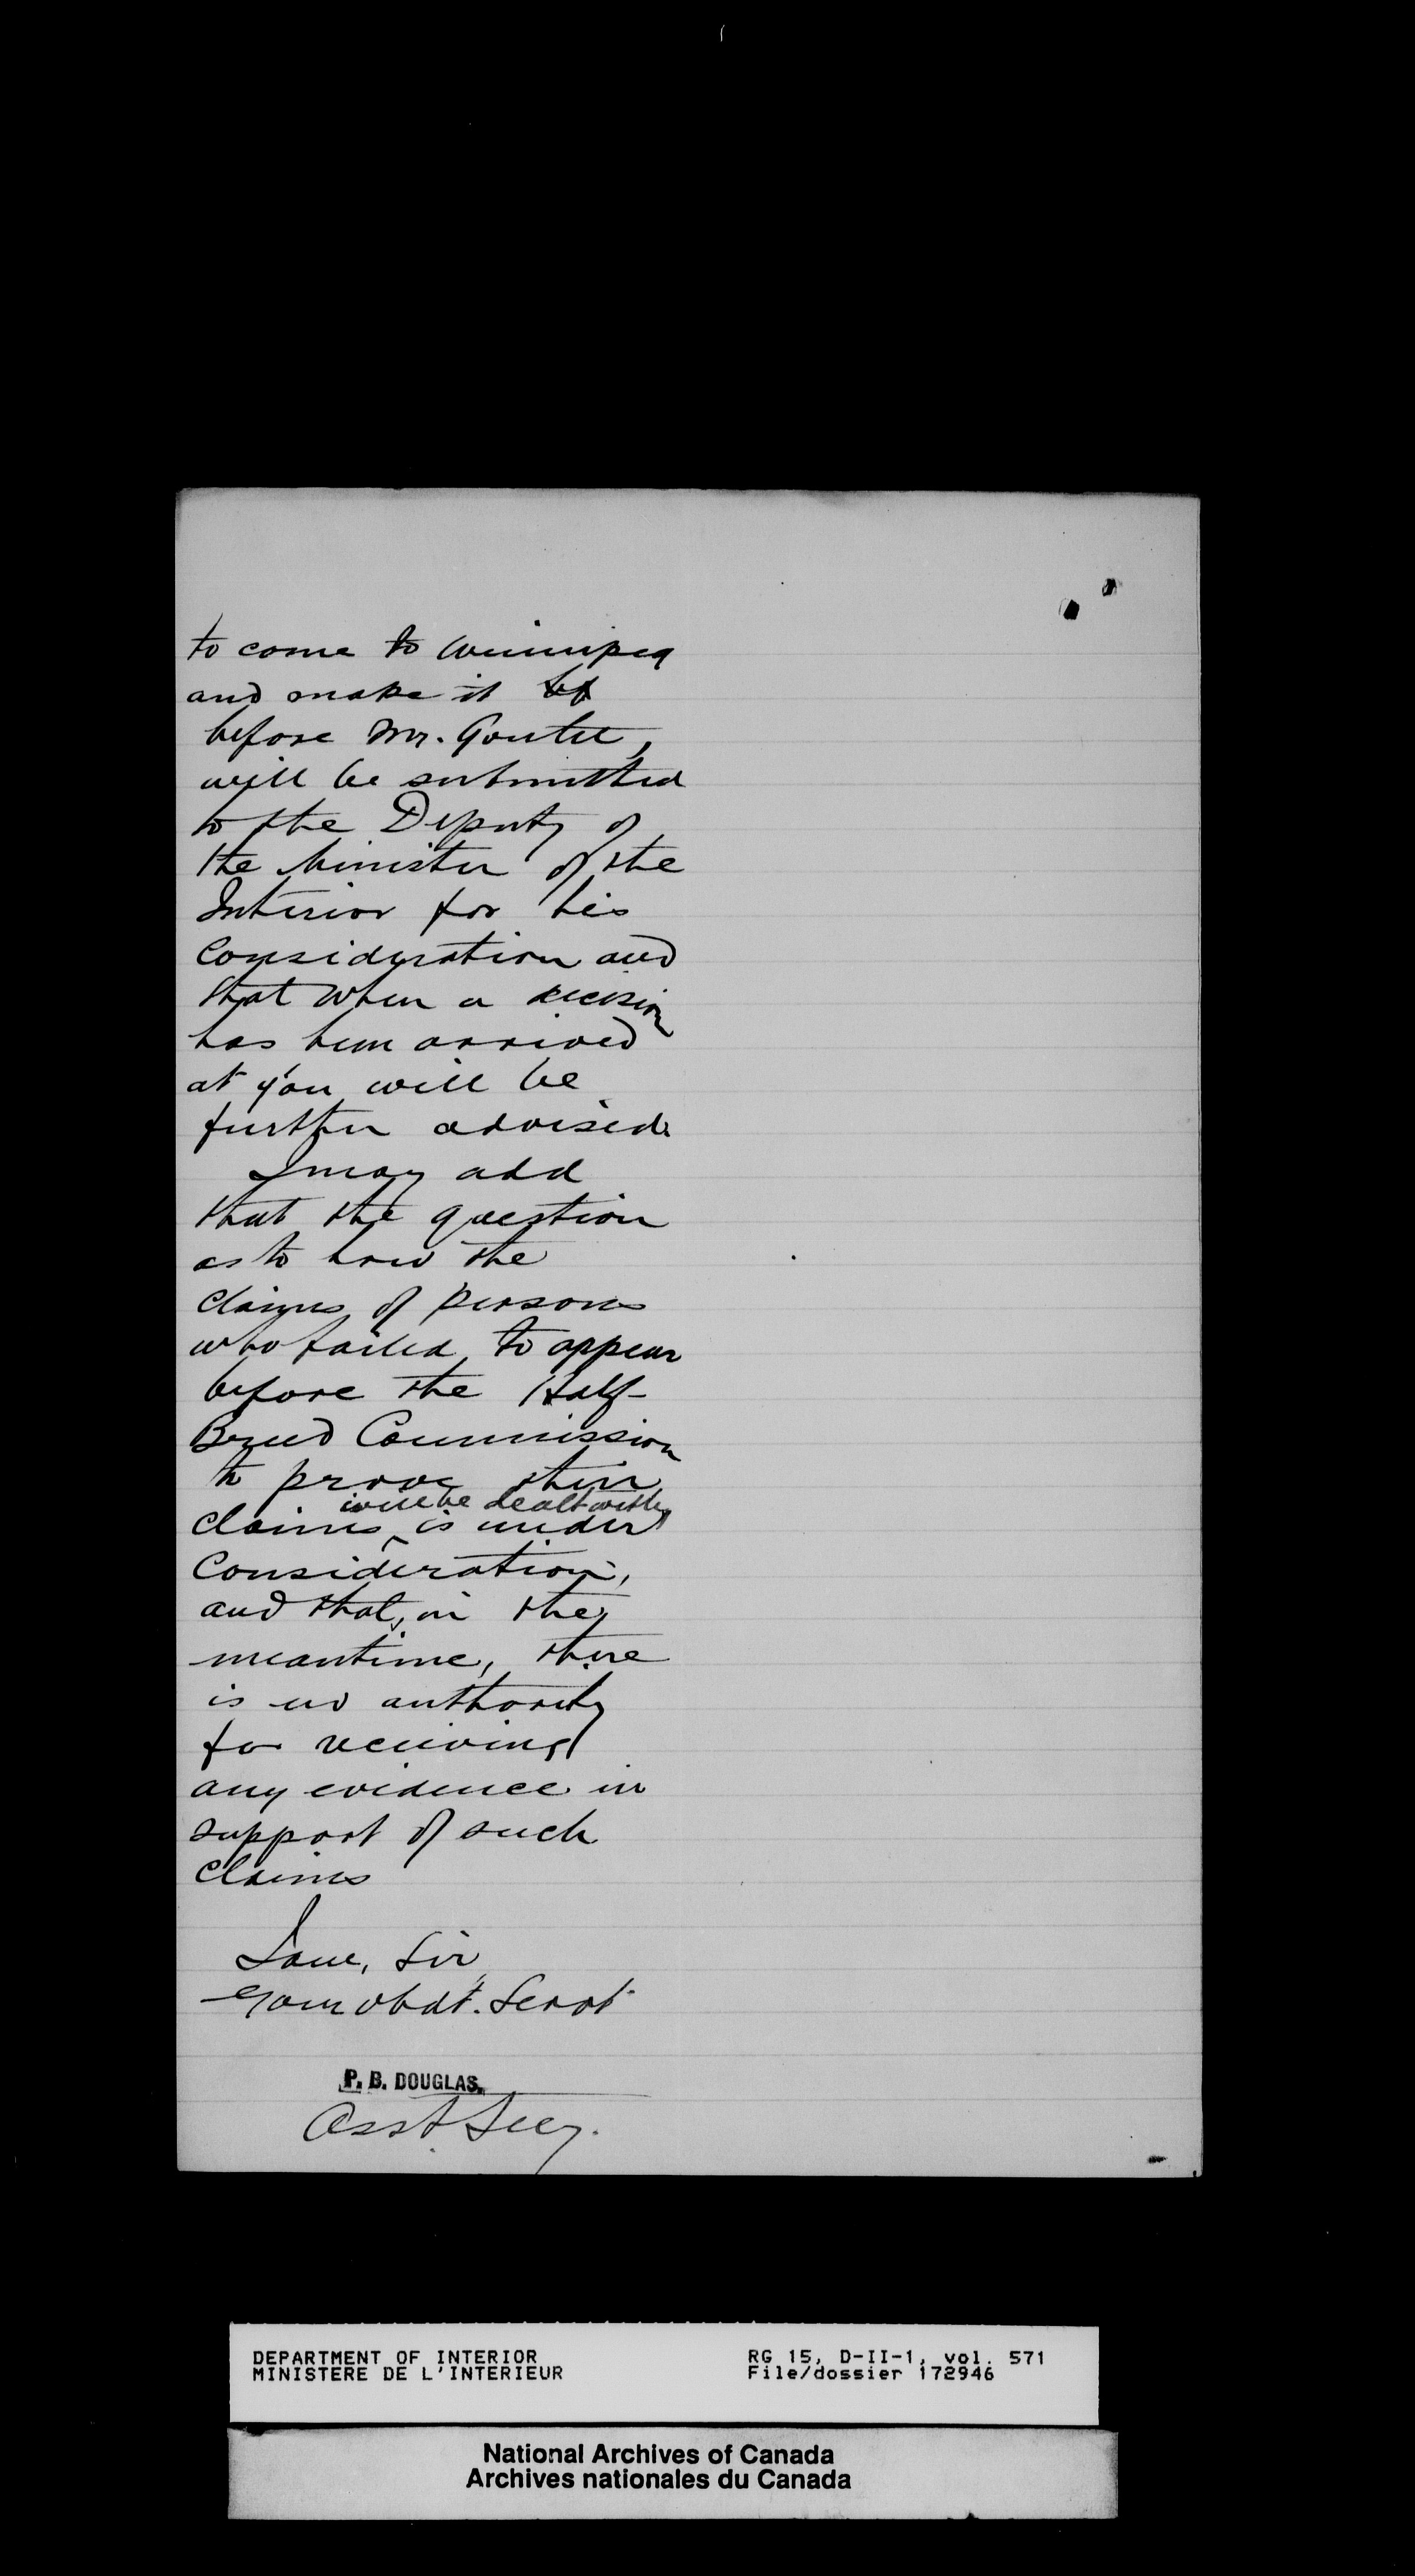 to come to Winnipeg
and make it
before Mr. Goulet,
will be submitted
to the Deputy of
the Minister of the
Interior for his
Consideration and
that when a decision
has been arrived
at you will be
further advised.
I may add
that the question
as to how the
claims of persons
who failed to appear
before the Half-
Breed Commission
to prove their
will be dealt with
claims ^ is under
Consideration,
and that, in the
meantime, there
is no authority
for receiving
any evidence in
support of such
Claims
I am, Sir,
Your obdt. Servt.
P. B. DOUGLAS.
Asst. Secy.
DEPARTMENT OF INTERIOR
MINISTERE DE L'INTERIEUR
RG 15, D-II-1, vol. 571
File/dossier 172946
National Archives of Canada
Archives nationales du Canada